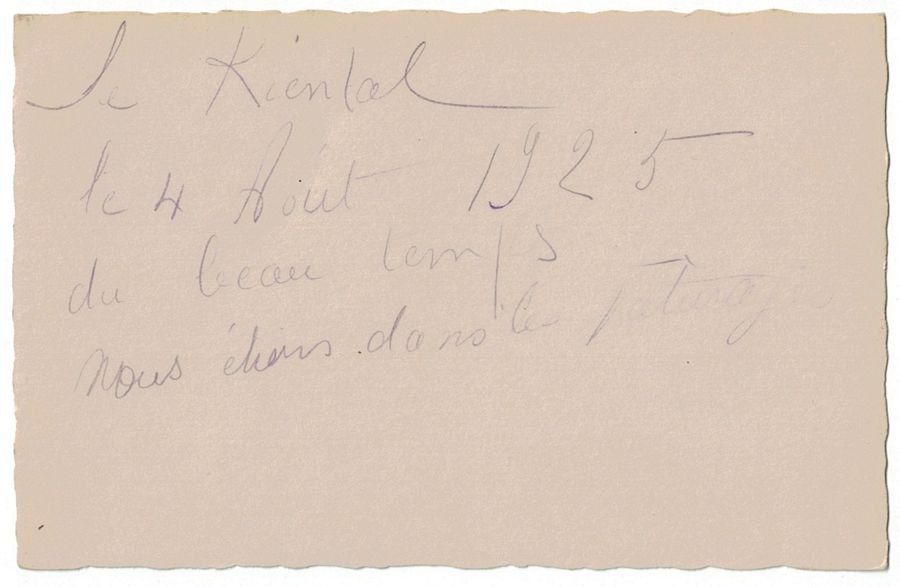 le Kiental
le 4 Août 1925
du beau temps
nous étions dans le pâturage